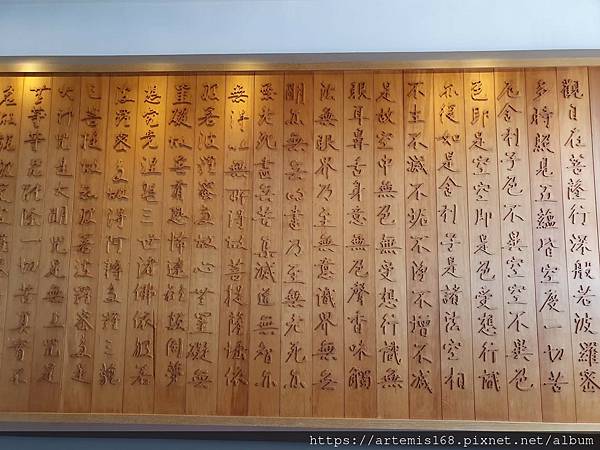 觀自在菩薩行深般若波羅蜜
多時照見五蘊皆空度一切苦
厄舍利子色不異空空不異色
色即是空空即是色受想行識
亦復如是舍利子是諸法空相
不生不滅不垢不淨不增不減
是故空中無色無受想行識無
眼耳鼻舌身意無色聲香味觸
法無眼界乃至無意識界無無
明亦無無明盡乃至無老死亦
無老死盡無苦集滅道無智亦
無得以無所得故菩提薩埵依
般若波羅蜜多故心無罣礙無
罣礙故無有恐怖遠離顛倒夢
想究竟涅槃三世諸佛依般若
波羅蜜多故得阿耨多羅三藐
三菩提故知般若波羅蜜多是
大神咒是大明咒是無上咒是
無等等咒能除一切苦真實不
虛故說般若
https://artemis168.pixnet.net/album